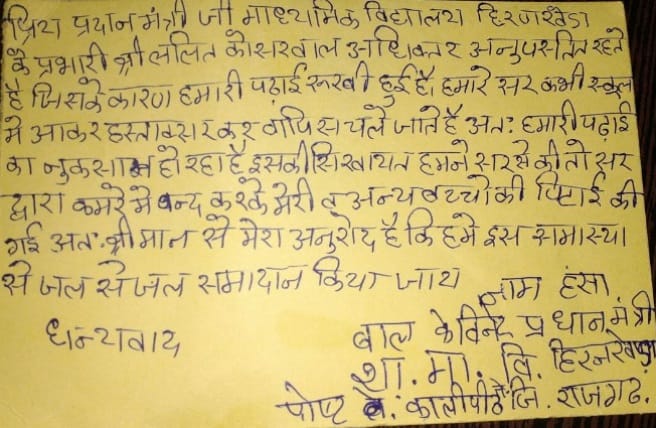 प्रिय प्रदानमंत्री जी माध्यमिक विद्यालय हिरजखेडा
के प्रभारी श्री ललित कोसरवाल अधिक्तर अनुपस्तित रहते
है जिसके कारण हमारी पढ़ाई रूखी हुई है। हमारे सर कभी स्कूल
मे आकर हस्ताक्सर कर वापिस चले जाते है अतः हमारी पढ़ाई
का नुकसान हो रहा है इसकी सिखायत हमने सर से की तो सर
द्वारा कमरे मे बन्द करके मेरी व अन्य बच्चो की पिटाई की
गई अतः श्रीमान से मेरा अनुरोद है कि हमे इस समास्या
से जल से जल समादान किया जाय
नाम हंसा
धन्यवाद
बाल केविनेट प्रधानमंत्री
शा. मा. वि. हिरनखेड़ा
पोष्ट कालीपीठ जि. राजगढ.